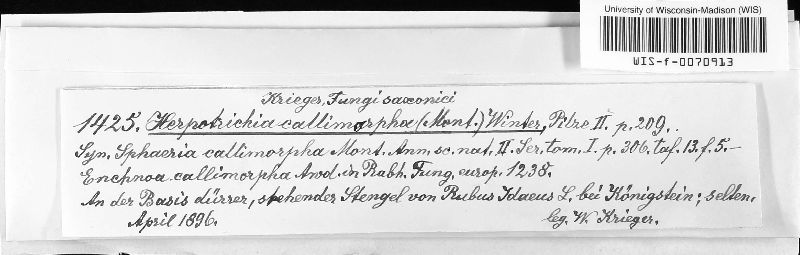 University of Wisconsin-Madison (WIS)
WIS-f-0070913
Krieger, Fungi saxonici
1425. Herpotrichia callimorpha (Mont.) Winter, Pilze II. p. 209.
Syn. Sphaeria callimorpha Mont. Ann. sc. nat. II. Ser. tom. I. p. 306. taf. 13. f. 5. —
Enchnoa callimorpha Awd. in Rabh. Fung. europ. 1238.
An der Basis dürrer, stehender Stengel von Rubus Idaeus L. bei Königstein; selten.
April 1896. leg. W. Krieger.